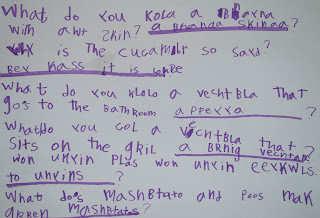 What do you KOLO a Bhana
With awt Skin? a Bhanana Skinaa?
Wix is the cucamber so sayd?
Bex Kass it is
What do you KLolo a vechtBla that
gos to the BathRoom a PPexxa?
What do you coL a vechtBLa that
Sits on the gRiL a BRhig vechtable?
won unxin PLas won unxin eexKwLs.
to unxins?
What does MashBtato and Peos mak
gkeen Mashbtatos?